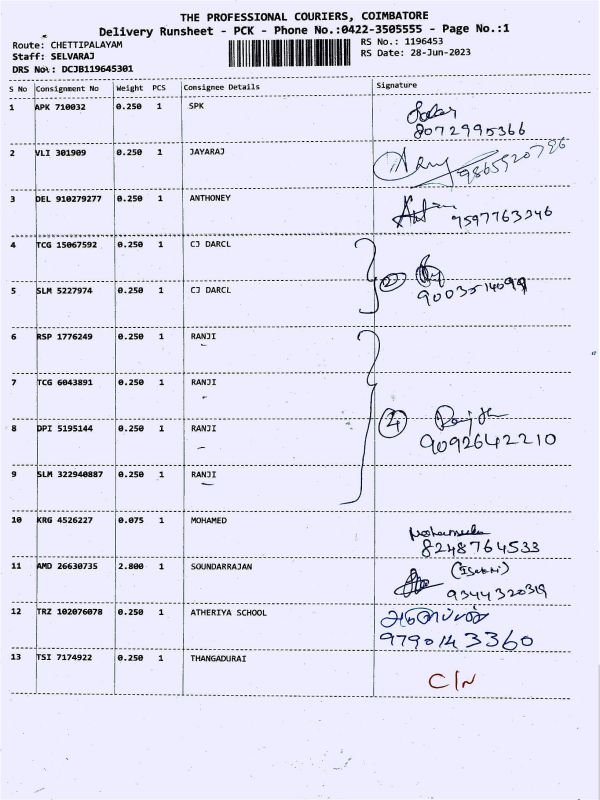 THE PROFESSIONAL COURIERS, COIMBATORE
Delivery Runsheet - PCK - Phone No.:0422-3505555 - Page No.:1
Route: CHETTIPALAYAM RS No.: 1196453
Staff: SELVARAJ RS Date: 28-Jun-2023
DRS No.: DCJB119645301
S No Consignment No Weight PCS Consignee Details Signature
1 APK 710032 0.250 1 SPK
8072995366
2 VLI 301909 0.250 1 JAYARAJ
9865920796
3 DEL 910279277 0.250 1 ANTHONEY
9597763346
4 TCG 15067592 0.250 1 CJ DARCL
2
5 SLM 5227974 0.250 1 CJ DARCL
6 RSP 1776249 0.250 1 RANJI
7 TCG 6043891 0.250 1 RANJI
8 DPI 5195144 0.250 1 RANJI
4 Ranjith
9092642210
9 SLM 322940887 0.250 1 RANJI
10 KRG 4526227 0.075 1 MOHAMED
8248764533
11 AMD 26630735 2.800 1 SOUNDARRAJAN
9344320319
12 TRZ 102076078 0.250 1 ATHERIYA SCHOOL
9790143360
13 TSI 7174922 0.250 1 THANGADURAI
C/N